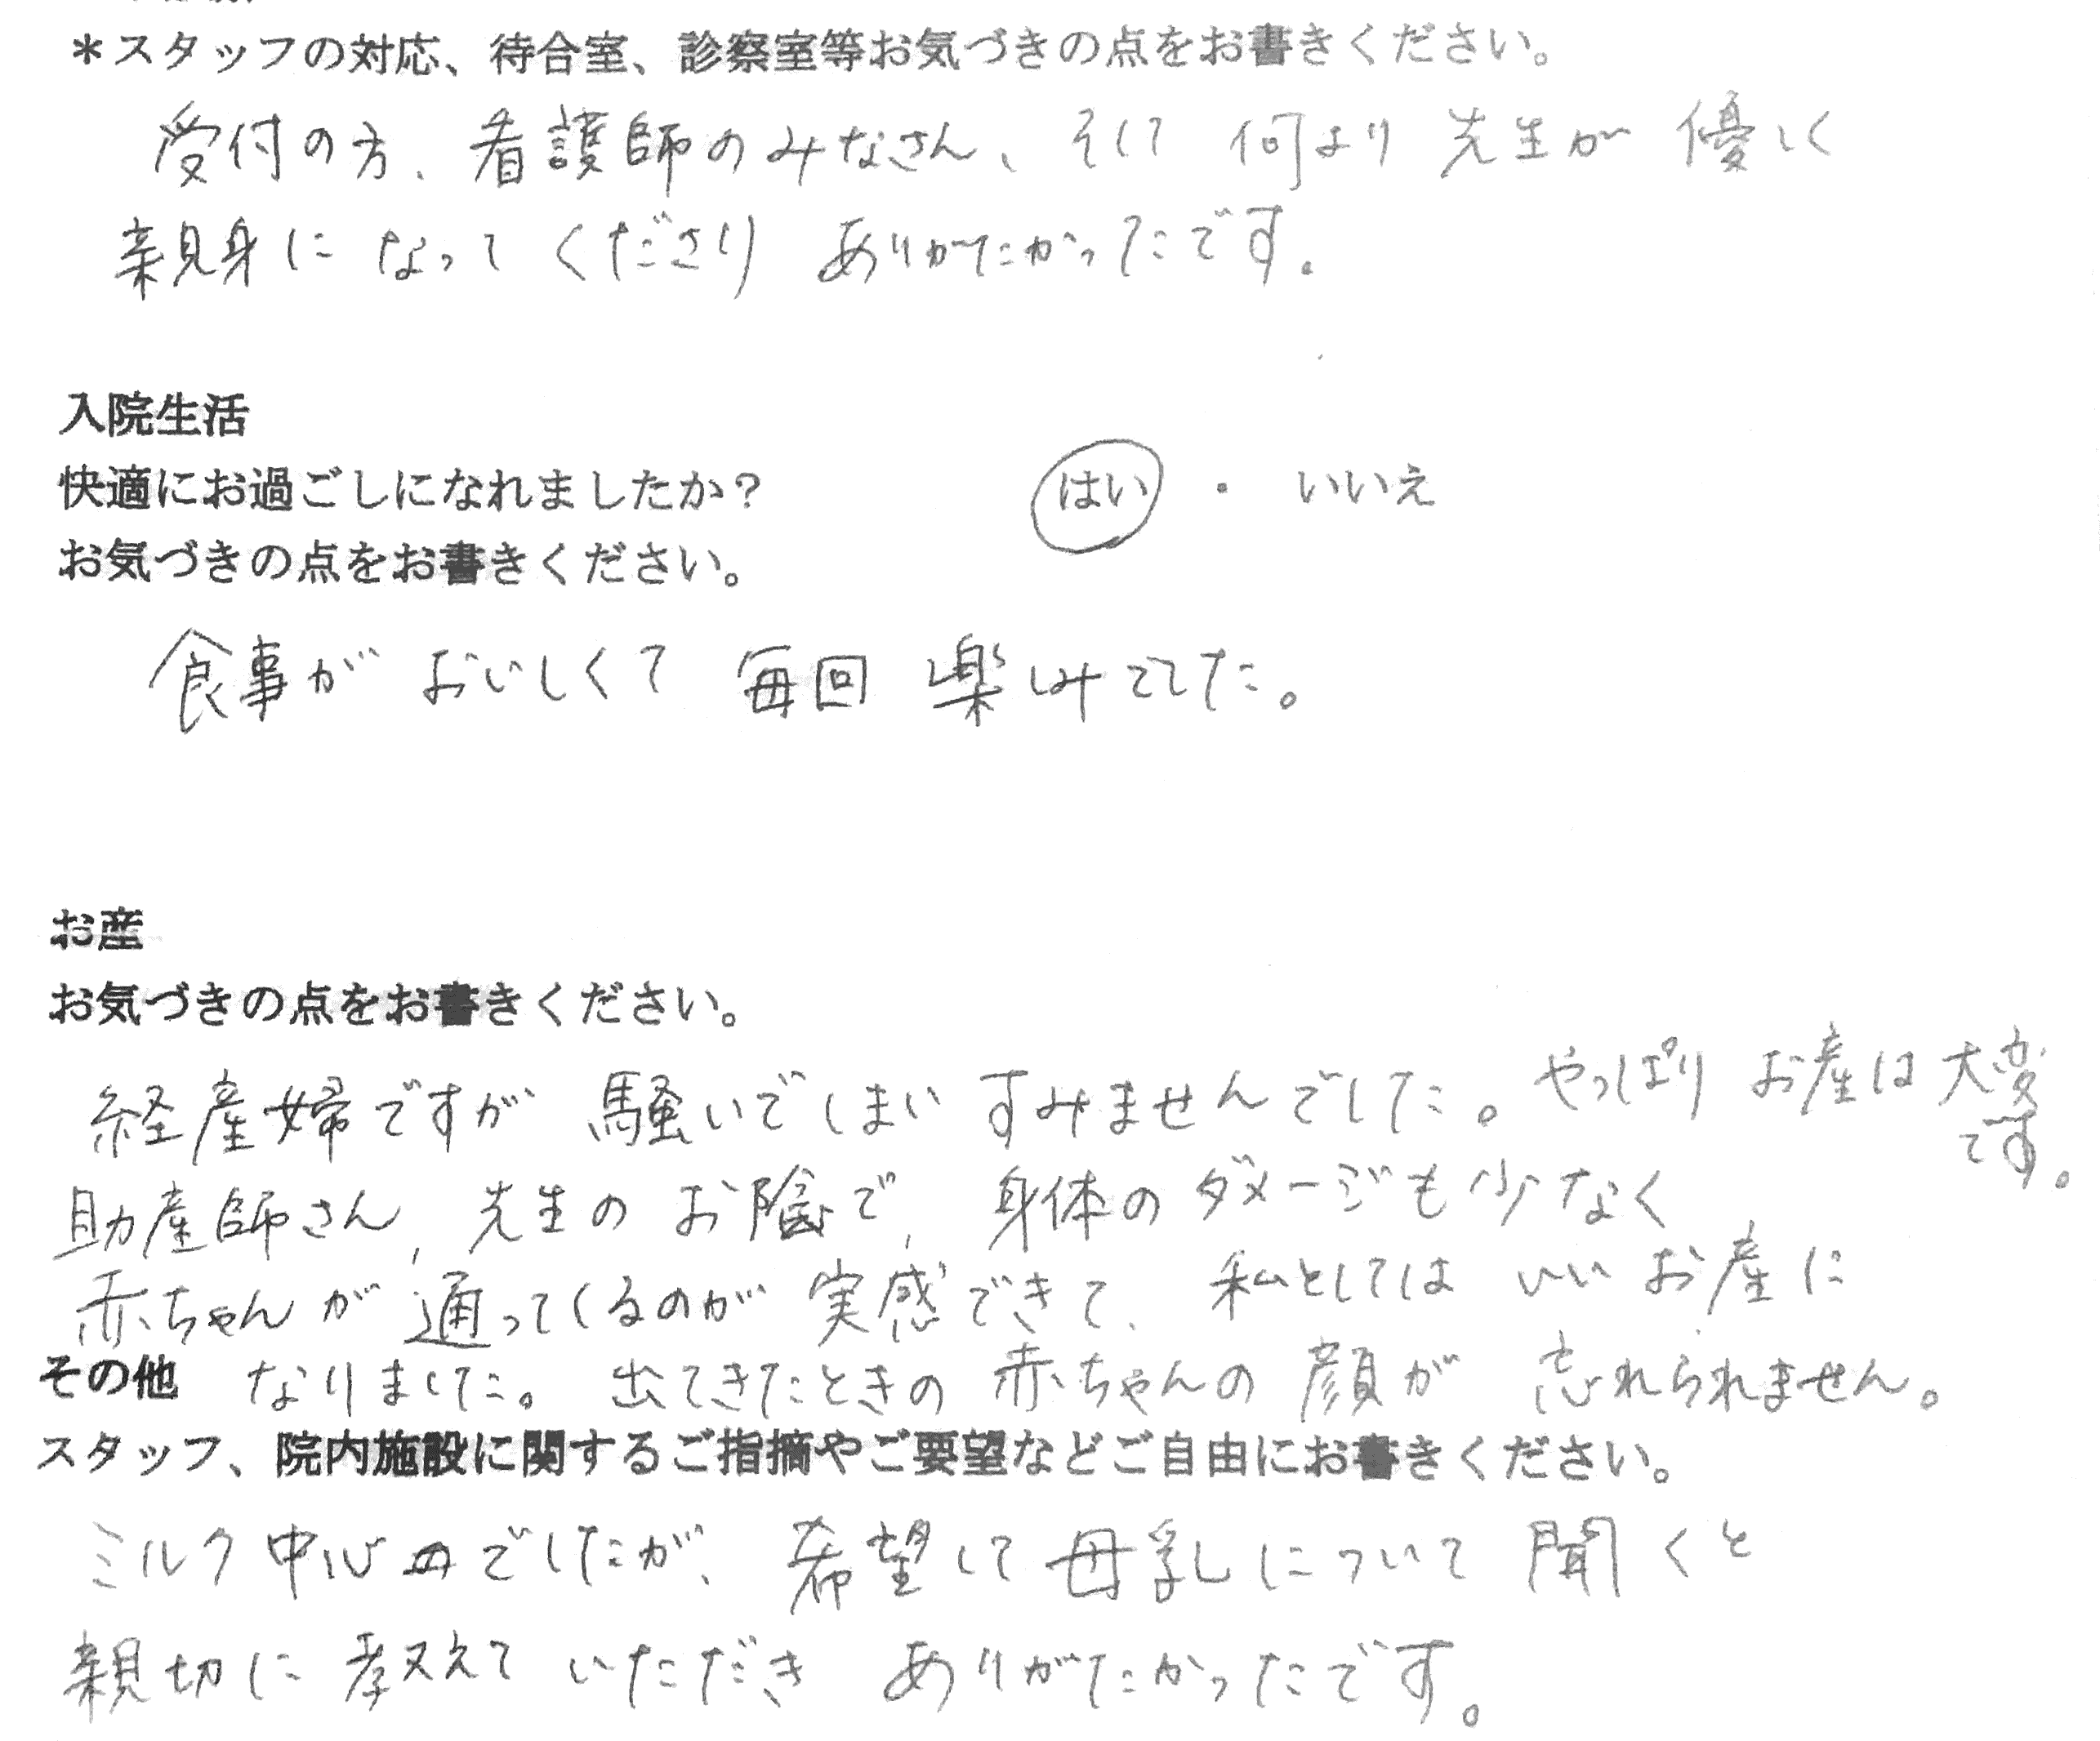 ＊スタッフの対応、待合室、診察室等お気づきの点をお書きください。
受付の方、看護師のみなさん、そして何より先生が優しく
親身になってくださりありがたかったです。
入院生活
快適にお過ごしになれましたか？ はい ・ いいえ
お気づきの点をお書きください。
食事がおいしくて毎回楽しみでした。
お産
お気づきの点をお書きください。
経産婦ですが騒いでしまいすみませんでした。やっぱりお産は大変
です。
助産師さん、先生のお陰で、身体のダメージも少なく
赤ちゃんが通ってくるのが実感できて、私としてはいいお産に
その他 なりました。出てきたときの赤ちゃんの顔が忘れられません。
スタッフ、院内施設に関するご指摘やご要望などご自由にお書きください。
ミルク中心のでしたが、希望して母乳について聞くと
親切に教えていただきありがたかったです。